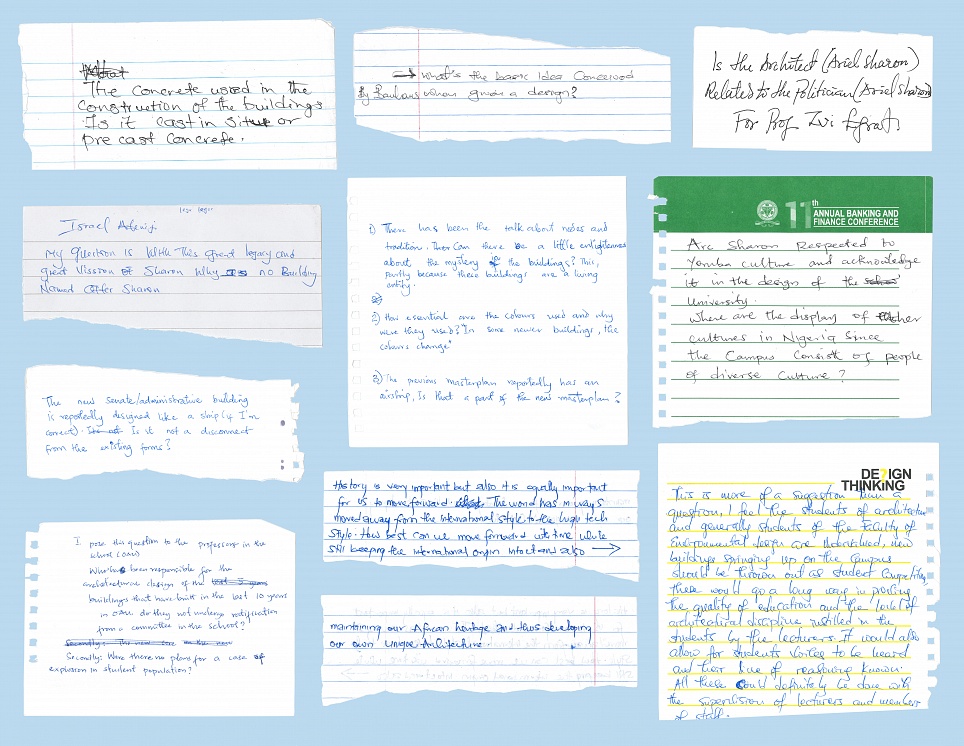 The Concrete used in the
construction of the buildings
Is it cast in situ or
pre cast concrete.
→ What's the basic Idea Conceived
By Bauhaus when given a design?
Is the Architect (Ariel Sharon)
Related to the Politician (Ariel Sharon)
For Prof. Zvi Efrat.
Israel
My Question is With This great legacy and
great Vission of Sharon Why is no Building
Named After Sharon
1) There has been the talk about nodes and
tradition. Then Can there be a little enlightenment
about the mystery of the buildings? This,
partly because these buildings are a living
entity.
2) How essential are the colours used and why
were they used? In some newer buildings, the
colours change
3) The previous masterplan reportedly has an
airship, Is that a part of the new masterplan?
11th ANNUAL BANKING AND
FINANCE CONFERENCE
Arc Sharon Respected to
Yoruba culture and acknowledge
it in the design of the
University.
where are the display of other
cultures in Nigeria Since
the Campus Consist of people
of diverse Culture?
The new senate/administrative building
is reportedly designed like a ship (if I'm
correct). Is it not a disconnect
from the existing forms?
History is very important but also it is equally important
for us to move forward. The world has in ways
moved away from the international style to the high tech
style. How best can we move forward with time while
still keeping the international origin intact and also →
maintaining our African heritage and thus developing
our own Unique Architecture.
I pose this question to the professors in the
school (OAU)
Who has been responsible for the
architectural design of the last 5 years
buildings that have built in the last 10 years
in OAU. do they not undergo ratification
from a committee in the school?
Secondly: Were there no plans for a case of
explosion in student population?
DE?IGN
THINKING
This is more of a suggestion than a
question, I feel the students of architecture
and generally students of the Faculty of
Environmental design are Underutilised, new
buildings springing up on the Campus
should be thrown out as student Competition,
these would go a long way in
the quality of education and the level of
architectural discipline instilled in the
students by the lecturers. It would also
allow for students voices to be heard
and their line of reasoning known.
All these could definitely be done with
the supervision of lecturers and members
of staff.